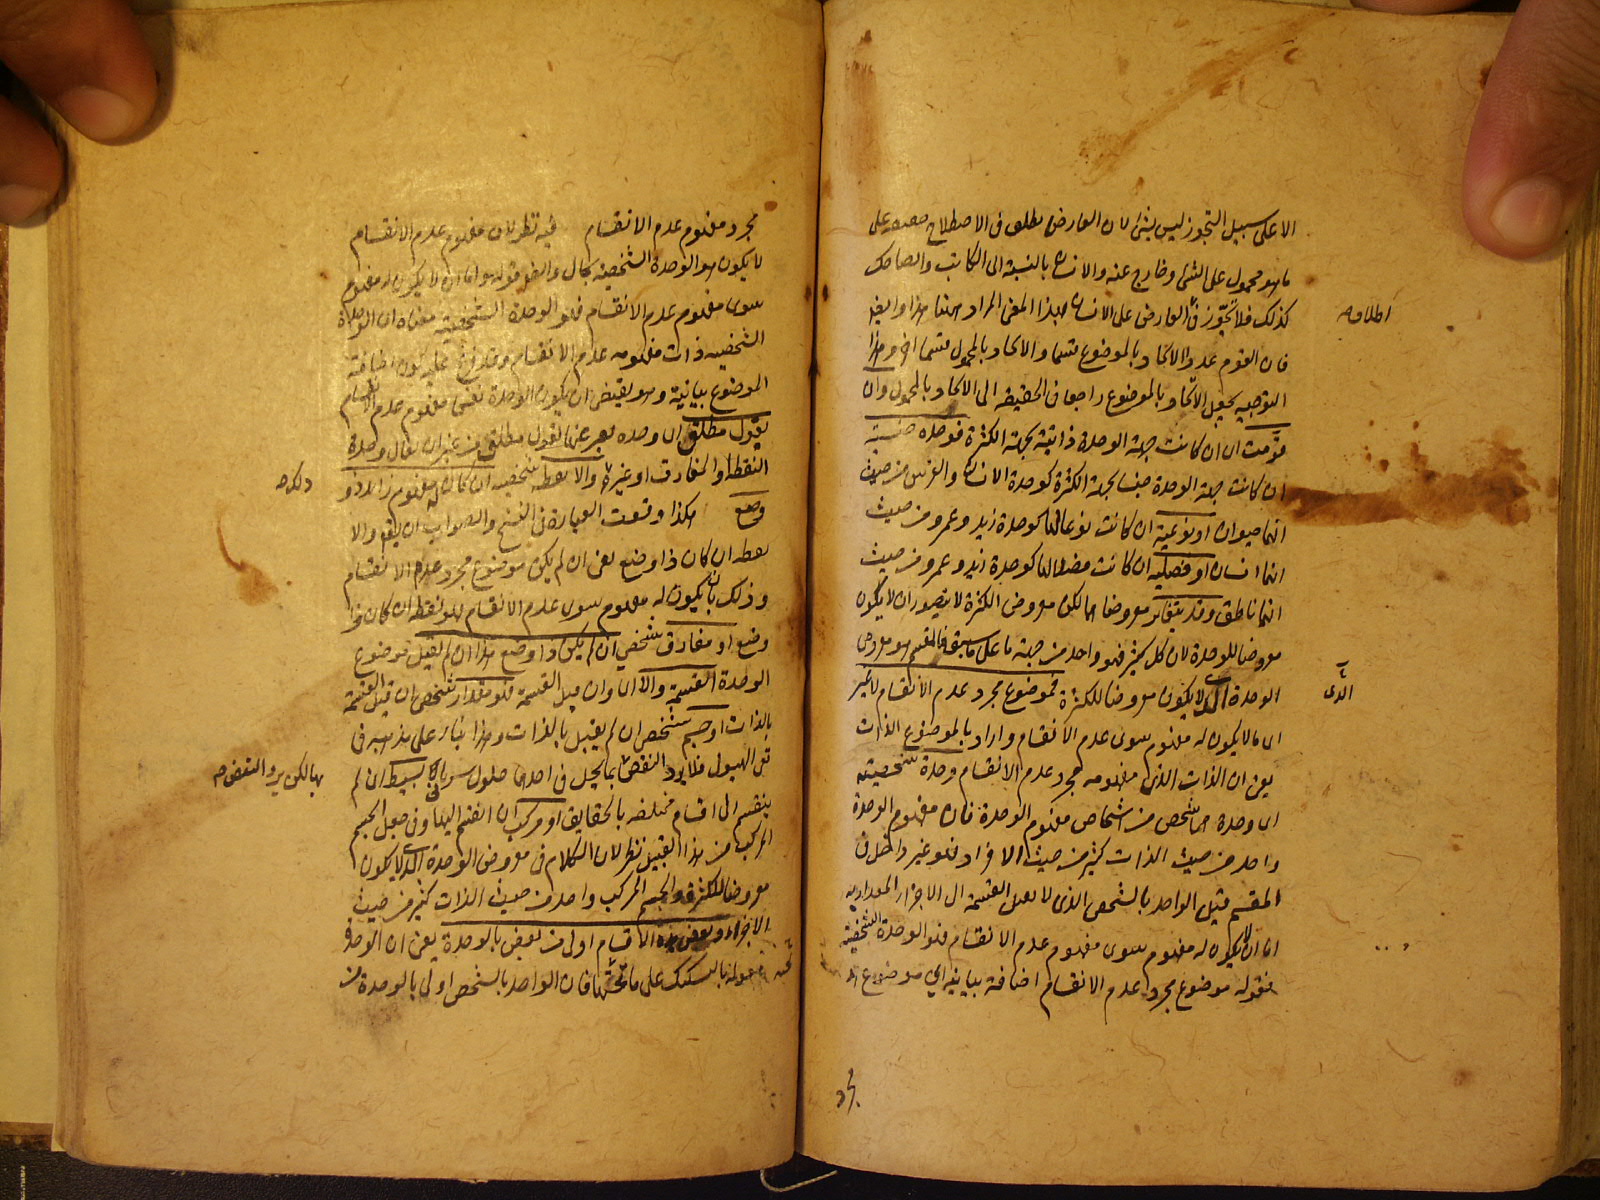 الا على سبيل التجوز ليس بشئ لان العارض يطلق فى الاصطلاح حقيقة على
ما هو محمول على الشئ وخارج عنه والانسان بالنسبة الى الكاتب والضاحك
كذلك فلا تجوز فى العارض على الانسان فهذا المعنى المراد ههنا هذا وايضا
اطلاقه
فان القوم عدوا الاتحاد بالموضوع قسما والاتحاد بالمحمول قسما اخر وهذا
التوجيه يجعل الاتحاد بالموضوع راجعا فى الحقيقة الى الاتحاد بالمحمول وان
قومت اى ان كانت جهة الوحدة ذاتية لجهة الكثرة فوحدة جنسية
ان كانت جهة الوحدة جنسا لجهة الكثرة كوحدة الانسان والفرس من حيث
انهما حيوان او نوعية ان كانت نوعا لها كوحدة زيد وعمرو من حيث
انهما انسان او فصلية ان كانت فصلا لها كوحدة زيد وعمرو من حيث
انهما ناطق وقد يتغاير معروضا هما لكن معروض الكثرة لا يتصور ان لا يكون
معروضا للوحدة لان كل كثير فهو واحد من جهة ما على ما سبق فالمقسم هو معروض
الوحدة الذى لا يكون معروضا للكثرة فموضوع مجرد عدم الانقسام لا غير
الذى
اى ما لا يكون له مفهوم سوى عدم الانقسام واراد بالموضوع الذات
يعنى ان الذات الذى مفهومه مجرد عدم الانقسام وحدة شخصية
اى وحدة هى شخص من اشخاص مفهوم الوحدة فان مفهوم الوحدة
واحد من حيث الذات كثير من حيث الافراد فهو غير داخل فى
المقسم قيل الواحد بالشخص الذى لا يقبل القسمة الى الاجزاء المقدارية
اما ان لا يكون له مفهوم سوى مفهوم عدم الانقسام فهو الوحدة الشخصية
فقوله موضوع مجرد عدم الانقسام اضافة بيانية اى موضوع هو
مجرد
مجرد مفهوم عدم الانقسام فيه نظر لان مفهوم عدم الانقسام
لا يكون هو الوحدة الشخصية بحال وايضا قوله اما ان لا يكون له مفهوم
سوى مفهوم عدم الانقسام فهو الوحدة الشخصية معناه ان الوحدة
الشخصية ذات مفهومه عدم الانقسام وقد فرع عليه كون اضافة
الموضوع بيانية وهو يقتضى ان يكون الوحدة نفس مفهوم عدم الانقسام
بقول مطلق اى وحدة يعبر عنها بقول مطلق من غير ان يقال وحدة
النقطة او المفارق او غيره والا نقطة شخصية ان كان له مفهوم زائد ذو
وضع هكذا وقعت العبارة فى النسخ والصواب ان يقع والا
نقطة ان كان ذا وضع يعنى ان لم يكن موضوع مجرد عدم الانقسام
وذلك بان يكون له مفهوم سوى عدم الانقسام فهو نقطة ان كان ذا
وضع او مفارق شخصى ان لم يكن ذا وضع هذا ان لم يقبل موضوع
الوحدة القسمة والا اى وان قبل القسمة فهو مقدار شخصى ان قبل القسمة
بالذات او جسم شخصى ان لم يقبل بالذات وهذا بناء على مذهبه فى
نفى الهيولى فلا يرد النقض بما يحل فى احدهما حلول سريانى بسيط ان لم
ينقسم الى اقسام مختلفة بالحقايق او مركب ان انقسم اليها وفى جعل الجسم
المركب من هذا القبيل نظر لان الكلام فى معروض الوحدة الذى لا يكون
معروضا للكثرة والجسم المركب واحد من حيث الذات كثير من حيث
الاجزاء وبعض هذه الاقسام اولى من بعض بالوحدة يعنى ان الوحدة
مقولة بالتشكيك على ما تحتها فان الواحد بالشخص اولى بالوحدة من